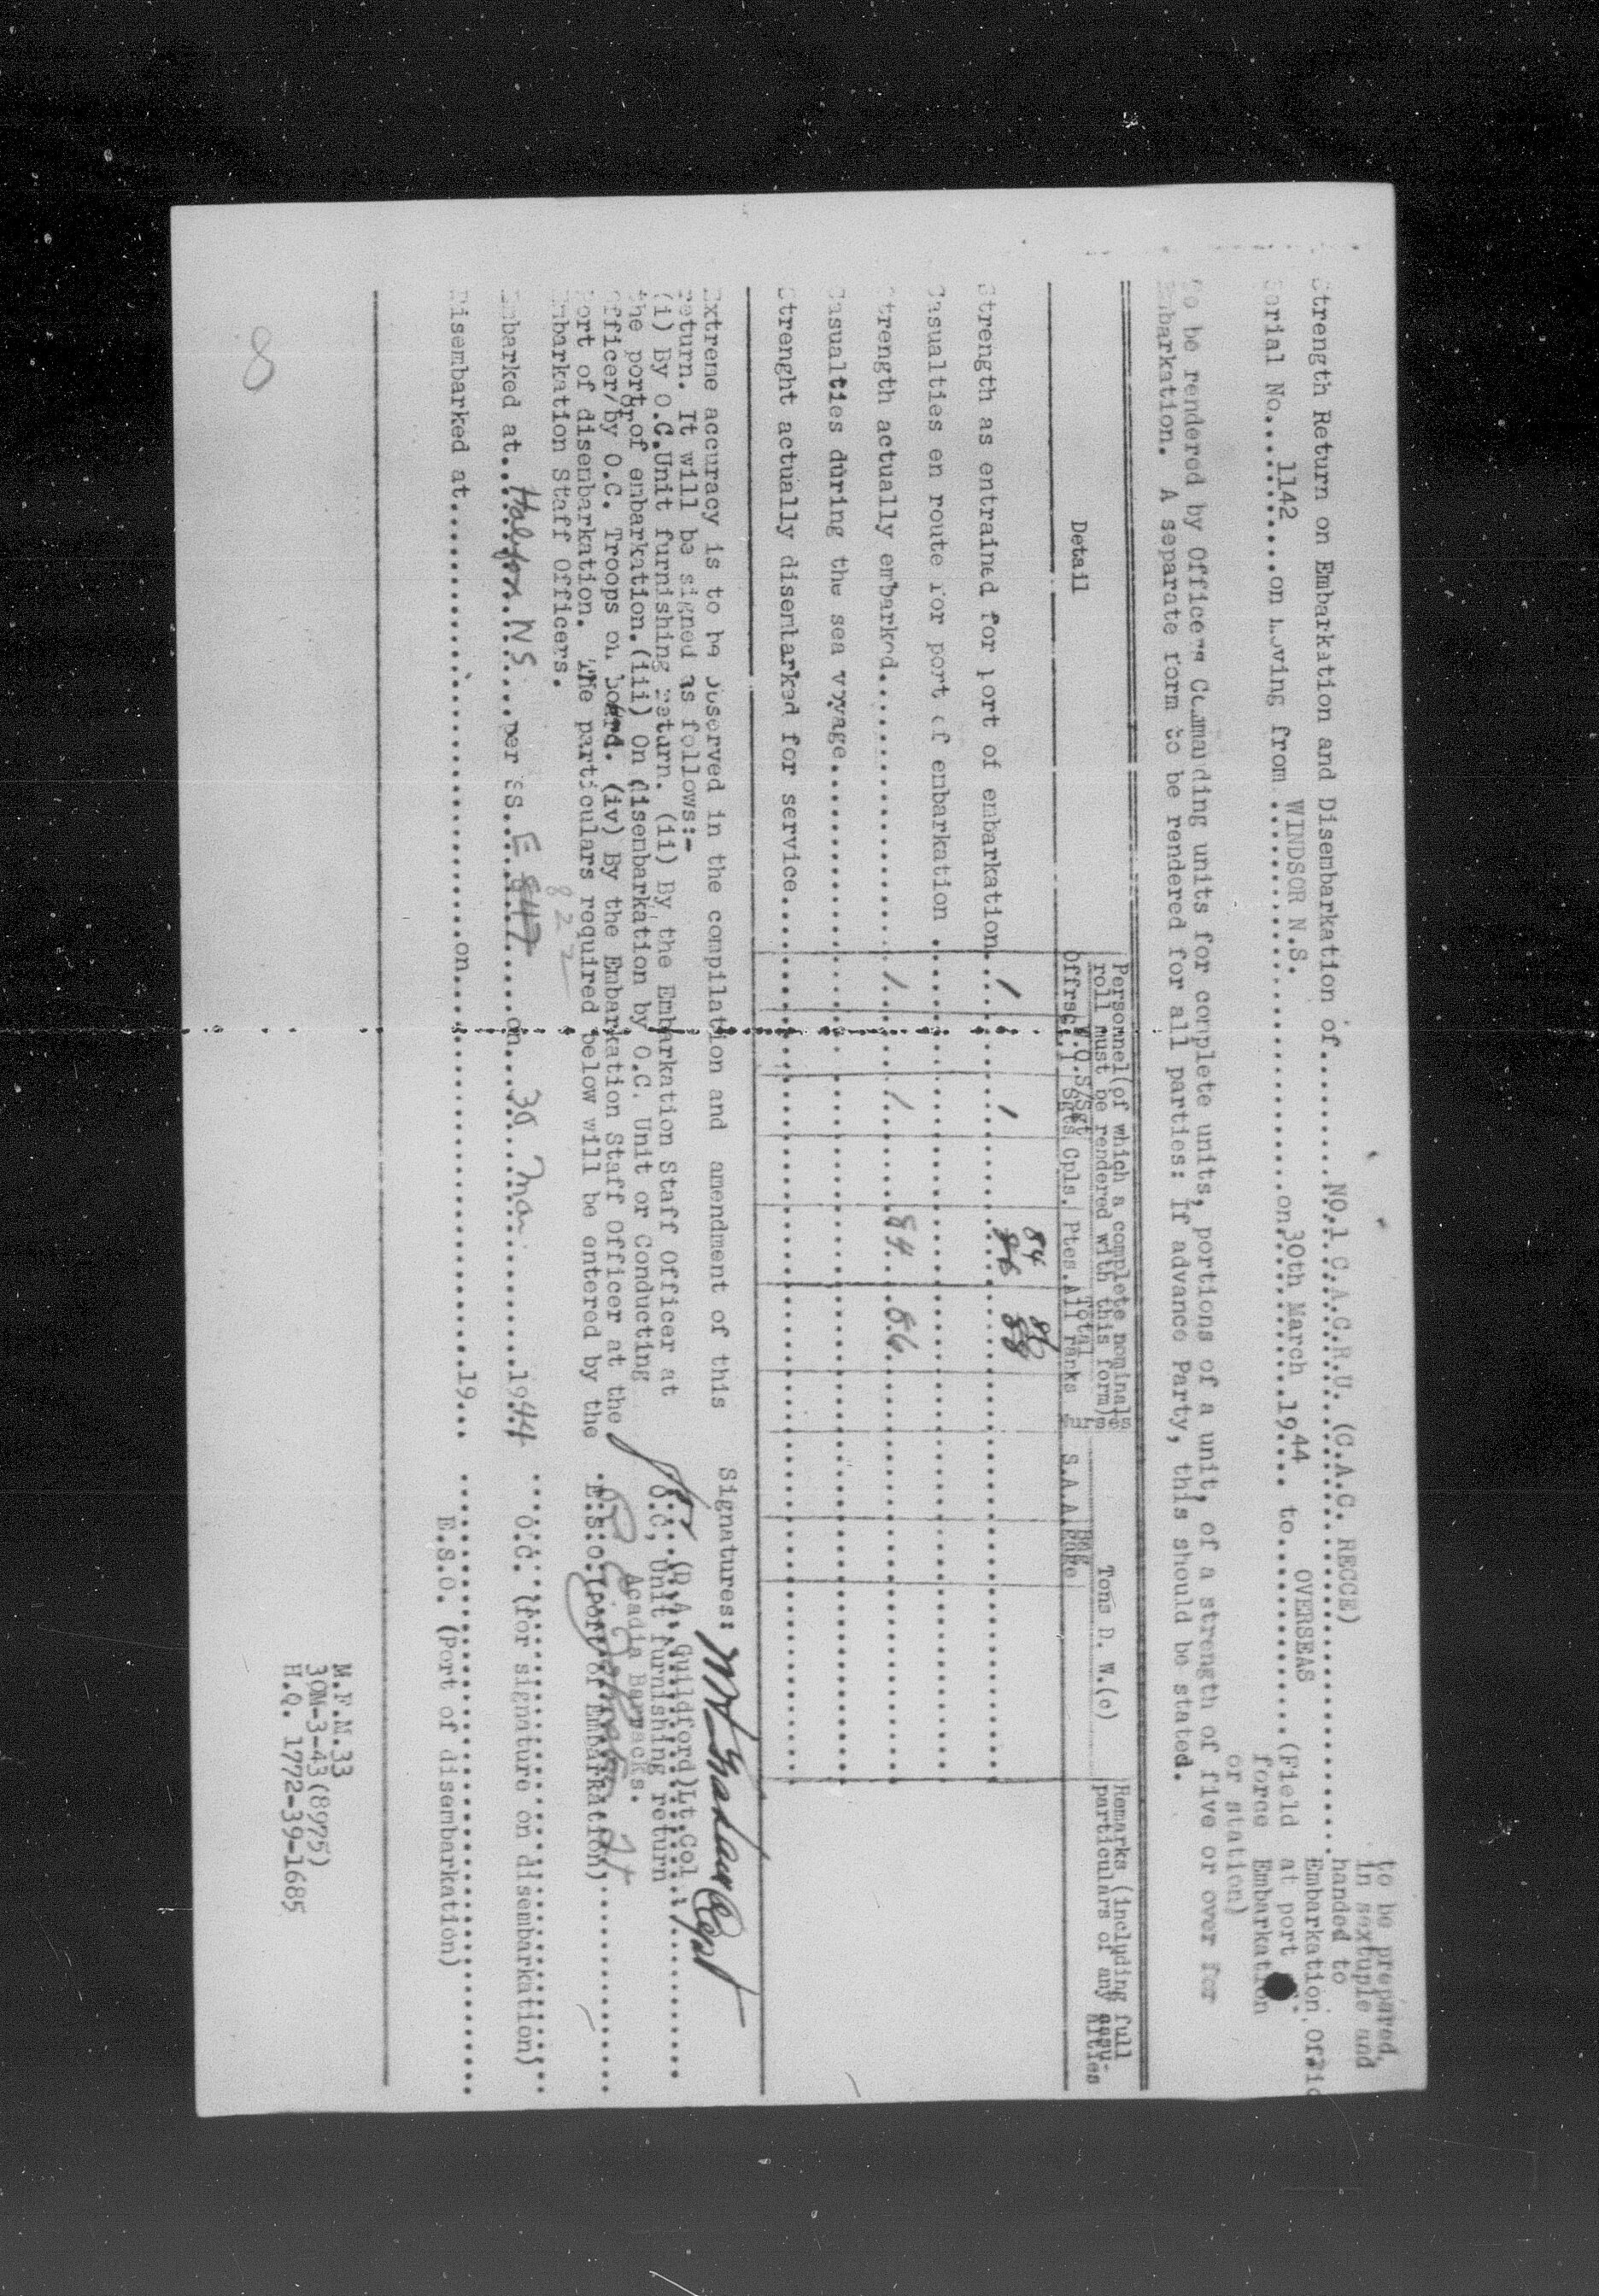 to be prepared,
in sextuple and
handed to
Strength Return on Embarkation and Disembarkation of.........NO.1 C.A.C.R.U. (C.A.C. RECCE)
Embarkation Offic
Serial No...1142...on moving from...WINDSOR N.S....on 30th March 1944... to...OVERSEAS...(Field at port of
force Embarkation
or station)
To be rendered by Officers Commanding units for complete units, portions of a unit, of a strength of five or over for
embarkation. A separate form to be rendered for all parties: If advance Party, this should be stated.
Detail
Personnel(of which a complete nominal
roll must be rendered with this form)
Offrs W.O. S/Sgt Sgts Cpls. Ptes. Total All ranks
Tons D. W.(c)
S.A.A. Bag gage
Remarks (including full
particulars of any casu-
alties
Strength as entrained for port of embarkation.. 1 1 86 84 88 86
Casualties en route for port of embarkation .
Strength actually embarked......... 1 1 84 86
Casualties during the sea vyyage.........
Strenght actually disembarked for service....
Extreme accuracy is to be observed in the compilation and amendment of this
return. It will be signed as follows:-
(i) By O.C.Unit furnishing return. (ii) By the Embarkation Staff Officer at
the port of embarkation.(iii) On disembarkation by O.C. Unit or Conducting
Officer/or by O.C. Troops on board. (iv) By the Embarkation Staff Officer at the
port of disembarkation. The particulars required below will be entered by the
Embarkation Staff Officers.
Signatures:
Capt
(D.A. Guildford)Lt.Col
O.C, Unit furnishing return
Acadia Barracks.
E.S.O.(port of Embarkation)
Embarked at...Halifax N S...per ss...E 847...on...30 Mar...1944
822
O.C. (for signature on disembarkation)
Disembarked at.........on.........19...
E.S.O. (Port of disembarkation)
M.F.M.33
30M-3-43(8975)
H.Q. 1772-39-1685
8